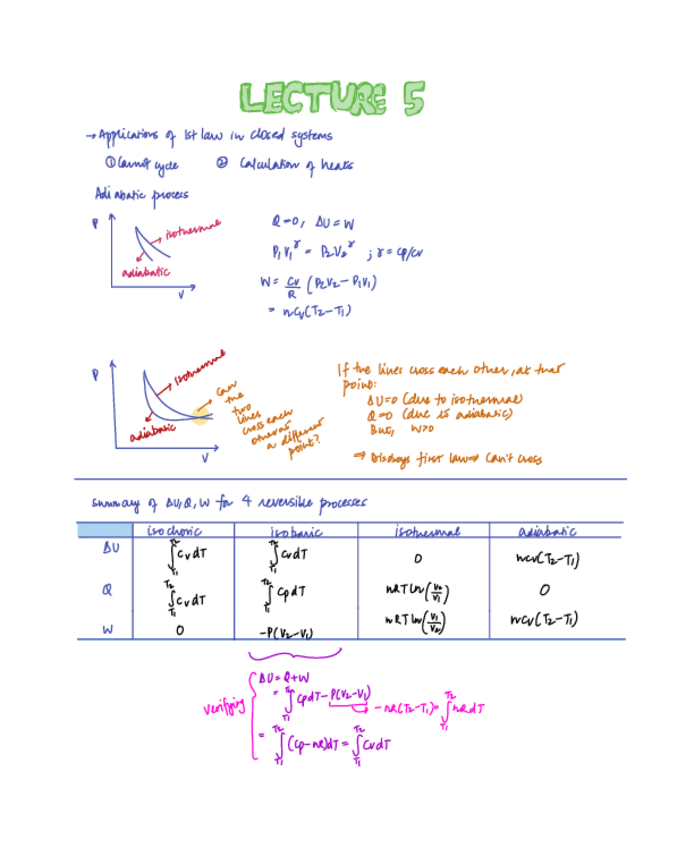 LECTURE 5
→ Applications of 1st law in closed systems
① Carnot cycle ② Calculation of heats
Adiabatic process
P
isothermal
adiabatic
V
Q=0, ΔU=W
P₁V₁^γ = P₂V₂^γ ; γ = cp/cv
W = Cv/R (P₂V₂ - P₁V₁)
= nCv(T₂-T₁)
P
isothermal
adiabatic
V
can
the
two
lines
cross each
other at
a different
point?
If the lines cross each other, at that
point:
ΔU=0 (due to isothermal)
Q=0 (due is adiabatic)
But, W>0
⇒ Disobeys first law ⇒ Can't cross
Summary of ΔU, Q, W for 4 reversible processes
isochoric isobaric isothermal adiabatic
ΔU ∫_{T₁}^{T₂} CvdT ∫_{T₁}^{T₂} CvdT 0 nCv(T₂-T₁)
Q ∫_{T₁}^{T₂} CvdT ∫_{T₁}^{T₂} CpdT nRT ln(V₂/V₁) 0
W 0 -P(V₂-V₁) nRT ln(V₁/V₂) nCv(T₂-T₁)
verifying
ΔU = Q+W
= ∫_{T₁}^{T₂} CpdT - P(V₂-V₁) → -nR(T₂-T₁) = ∫_{T₁}^{T₂} nRdT
= ∫_{T₁}^{T₂} (Cp-nR)dT = ∫_{T₁}^{T₂} CvdT